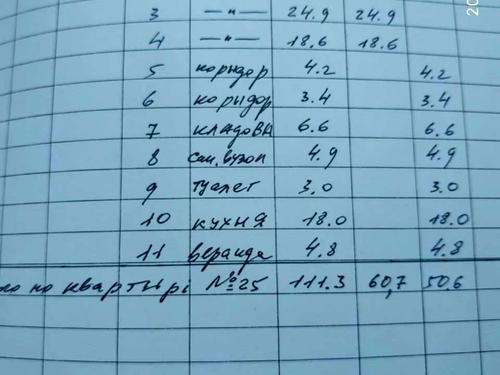 3 —"— 24.9 24.9
4 —"— 18.6 18.6
5 коридор 4.2 4.2
6 коридор 3.4 3.4
7 кладовк 6.6 6.6
8 сан.узол 4.9 4.9
9 туалет 3.0 3.0
10 кухня 18.0 18.0
11 веранда 4.8 4.8
го по квартыри №25 111.3 60,7 50.6